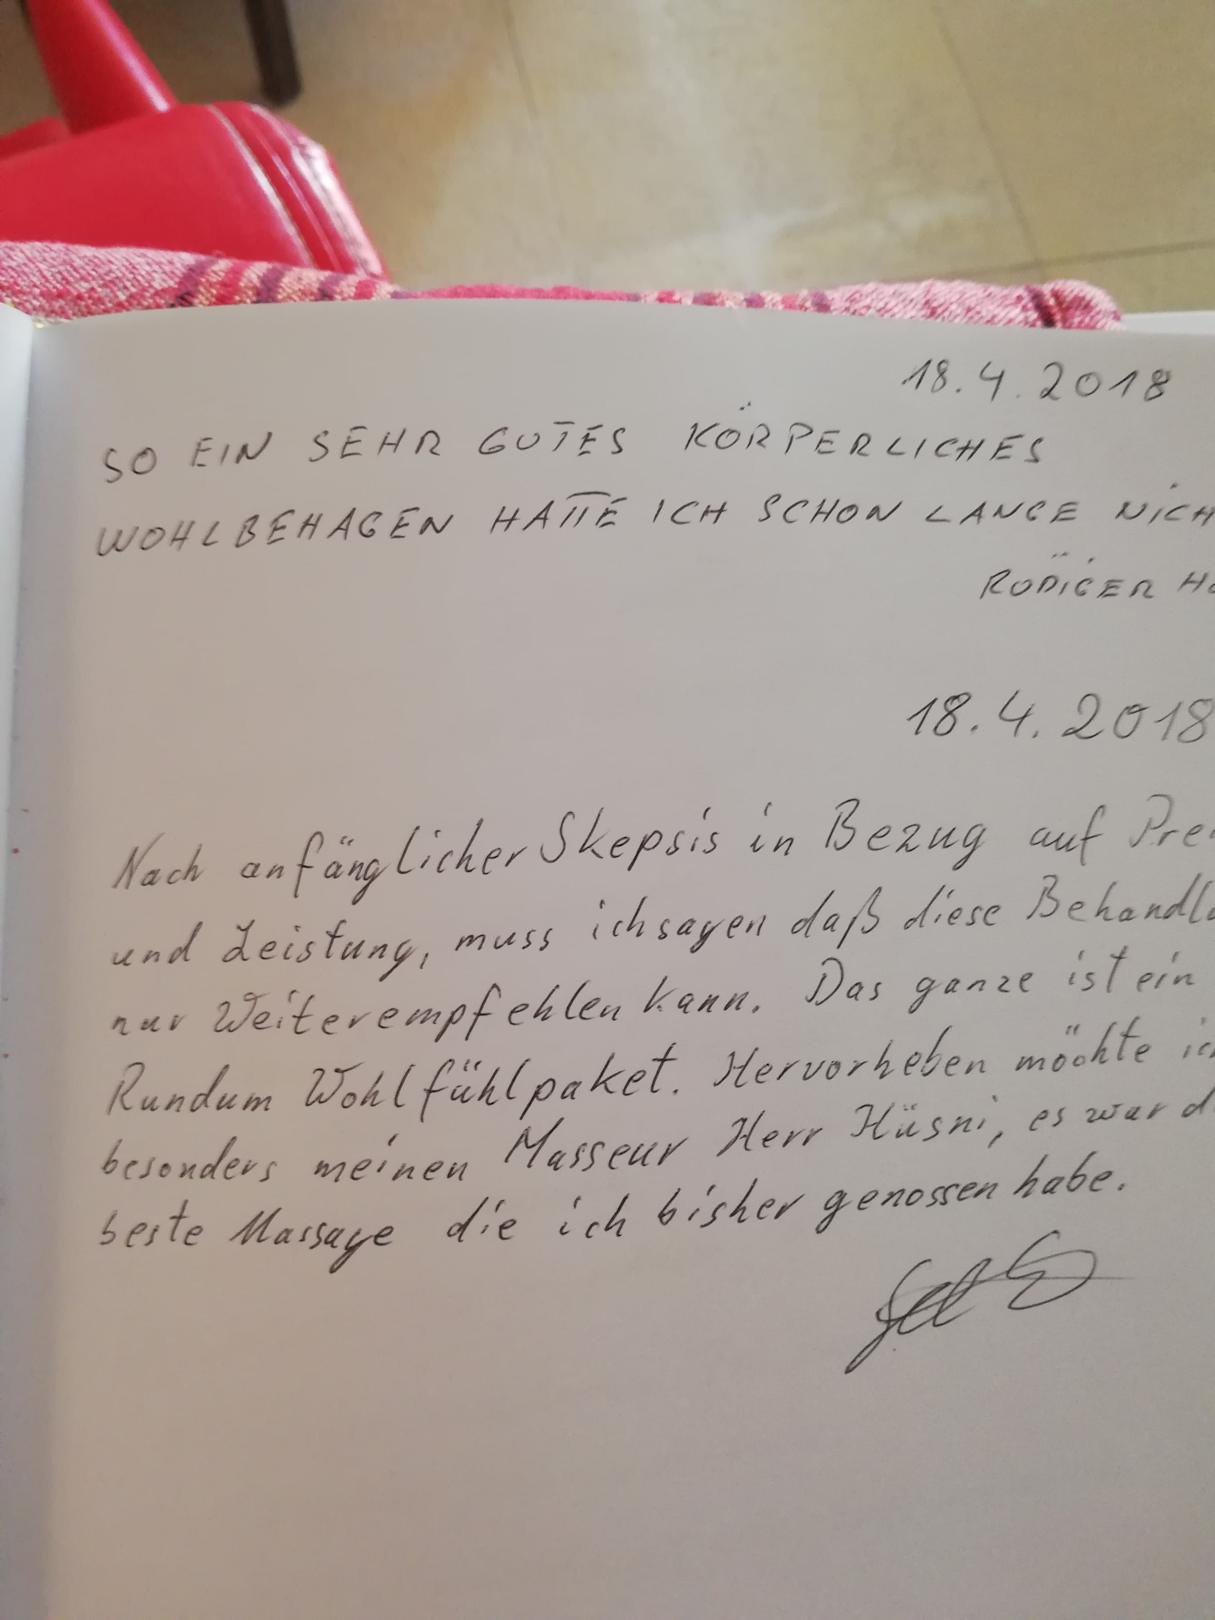 18.4.2018
SO EIN SEHR GUTES KÖRPERLICHES
WOHLBEHAGEN HATTE ICH SCHON LANGE NICH
RÜDIGER
18.4.2018
Nach anfänglicher Skepsis in Bezug auf Prei
und Leistung, muss ich sagen daß diese Behandlu
nur Weiterempfehlen kann. Das ganze ist ein
Rundum Wohlfühlpaket. Hervorheben möchte ic
besonders meinen Masseur Herr Hüsni, es war d
beste Massage die ich bisher genossen habe.